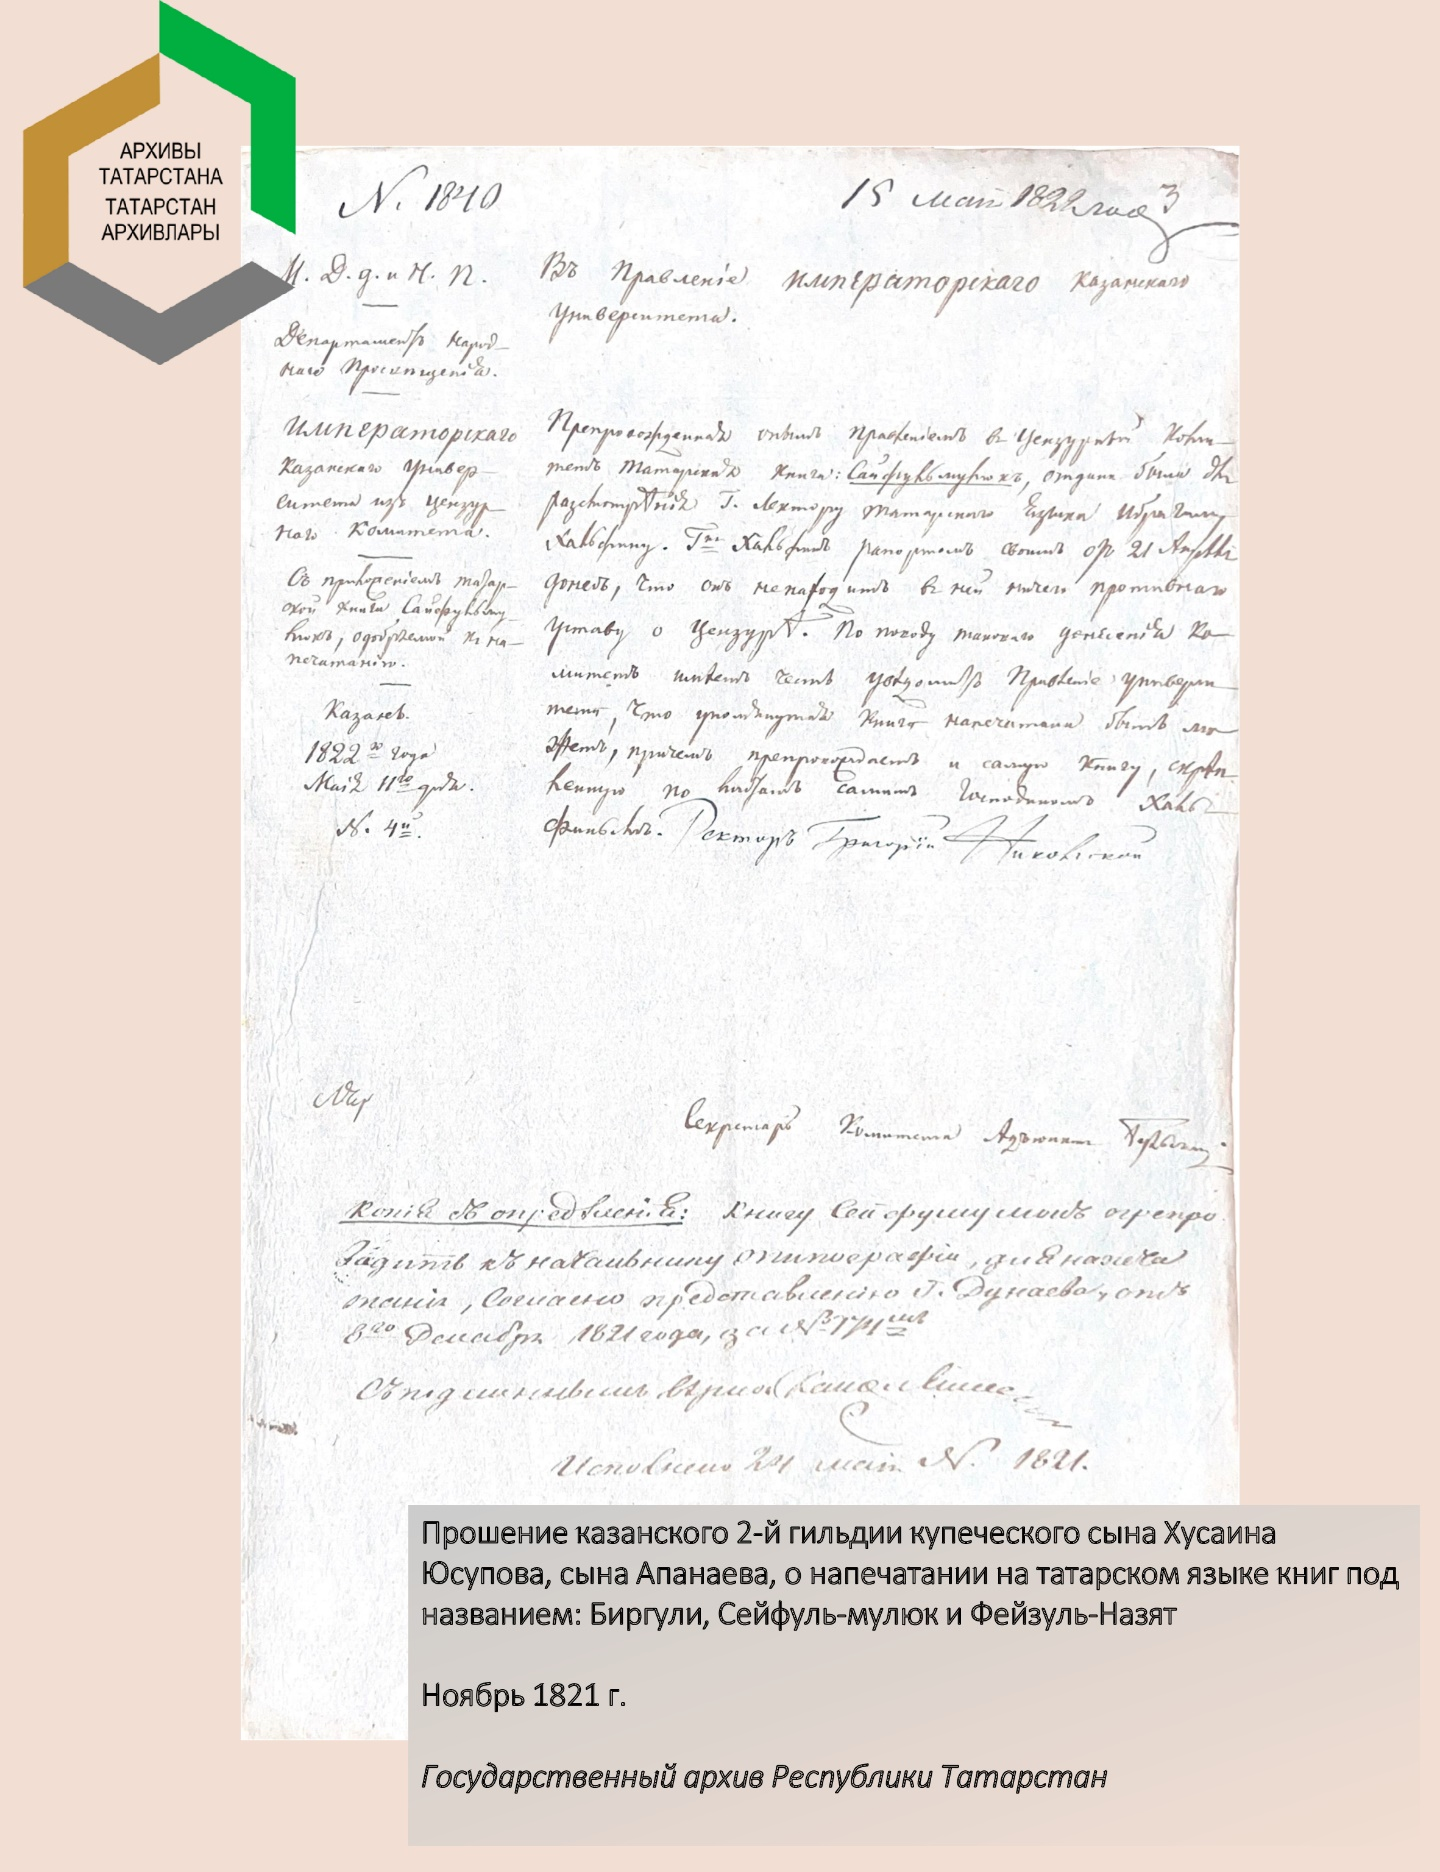 АРХИВЫ
ТАТАРСТАНА
ТАТАРСТАН
АРХИВЛАРЫ
N. 1840
15 мая 1822 года
3
М. Д. д. и Н. П.
Департаментъ Народ-
наго Просвещенія.
ИМПЕРАТОРСКАГО
Казанскаго Универ-
ситета изъ Цензур-
наго Комитета.
Съ приложеніемъ татар-
ской книги Сайфулмму-
люкъ, одобряемой къ на-
печатанію.
Казань.
1822го года
Маія 11го дня.
N. 4й.
Въ Правленіе ИМПЕРАТОРСКАГО Казанскаго
Университета.
Препровожденная онымъ Правленіемъ въ Цензурный Коми-
тетъ Татарская книга: Сайфулмулюкъ, отдана была для
разсмотрѣнія Г. Лектору татарскаго языка Ибрагиму
Хальфину. Гнъ Хальфинъ рапортомъ своимъ отъ 21 Апрѣля
донесъ, что онъ не находитъ въ ней ничего противнаго
Уставу о Цензурѣ. По поводу таковаго донесенія Ко-
митетъ имѣетъ честь увѣдомить Правленіе Универси-
тета, что упомянутая книга напечатана быть мо-
жетъ, причемъ препровождаетъ и самую книгу, скрѣп-
ленную по листамъ самимъ Господиномъ Халь-
финымъ. Ректоръ Григорій Никольской
Секретарь Комитета Адъюнктъ
Копія съ опредѣленія: Книгу Сейфулмулюкъ препро
водить къ начальнику типографіи, для напеча
танія, согласно представленію Г. Дунаева, отъ
8го Декабря 1821 года, за №
Съ подлиннымъ вѣрно
Исполнено 24 мая N. 1821.
Прошение казанского 2-й гильдии купеческого сына Хусаина
Юсупова, сына Апанаева, о напечатании на татарском языке книг под
названием: Биргули, Сейфуль-мулюк и Фейзуль-Назят
Ноябрь 1821 г.
Государственный архив Республики Татарстан